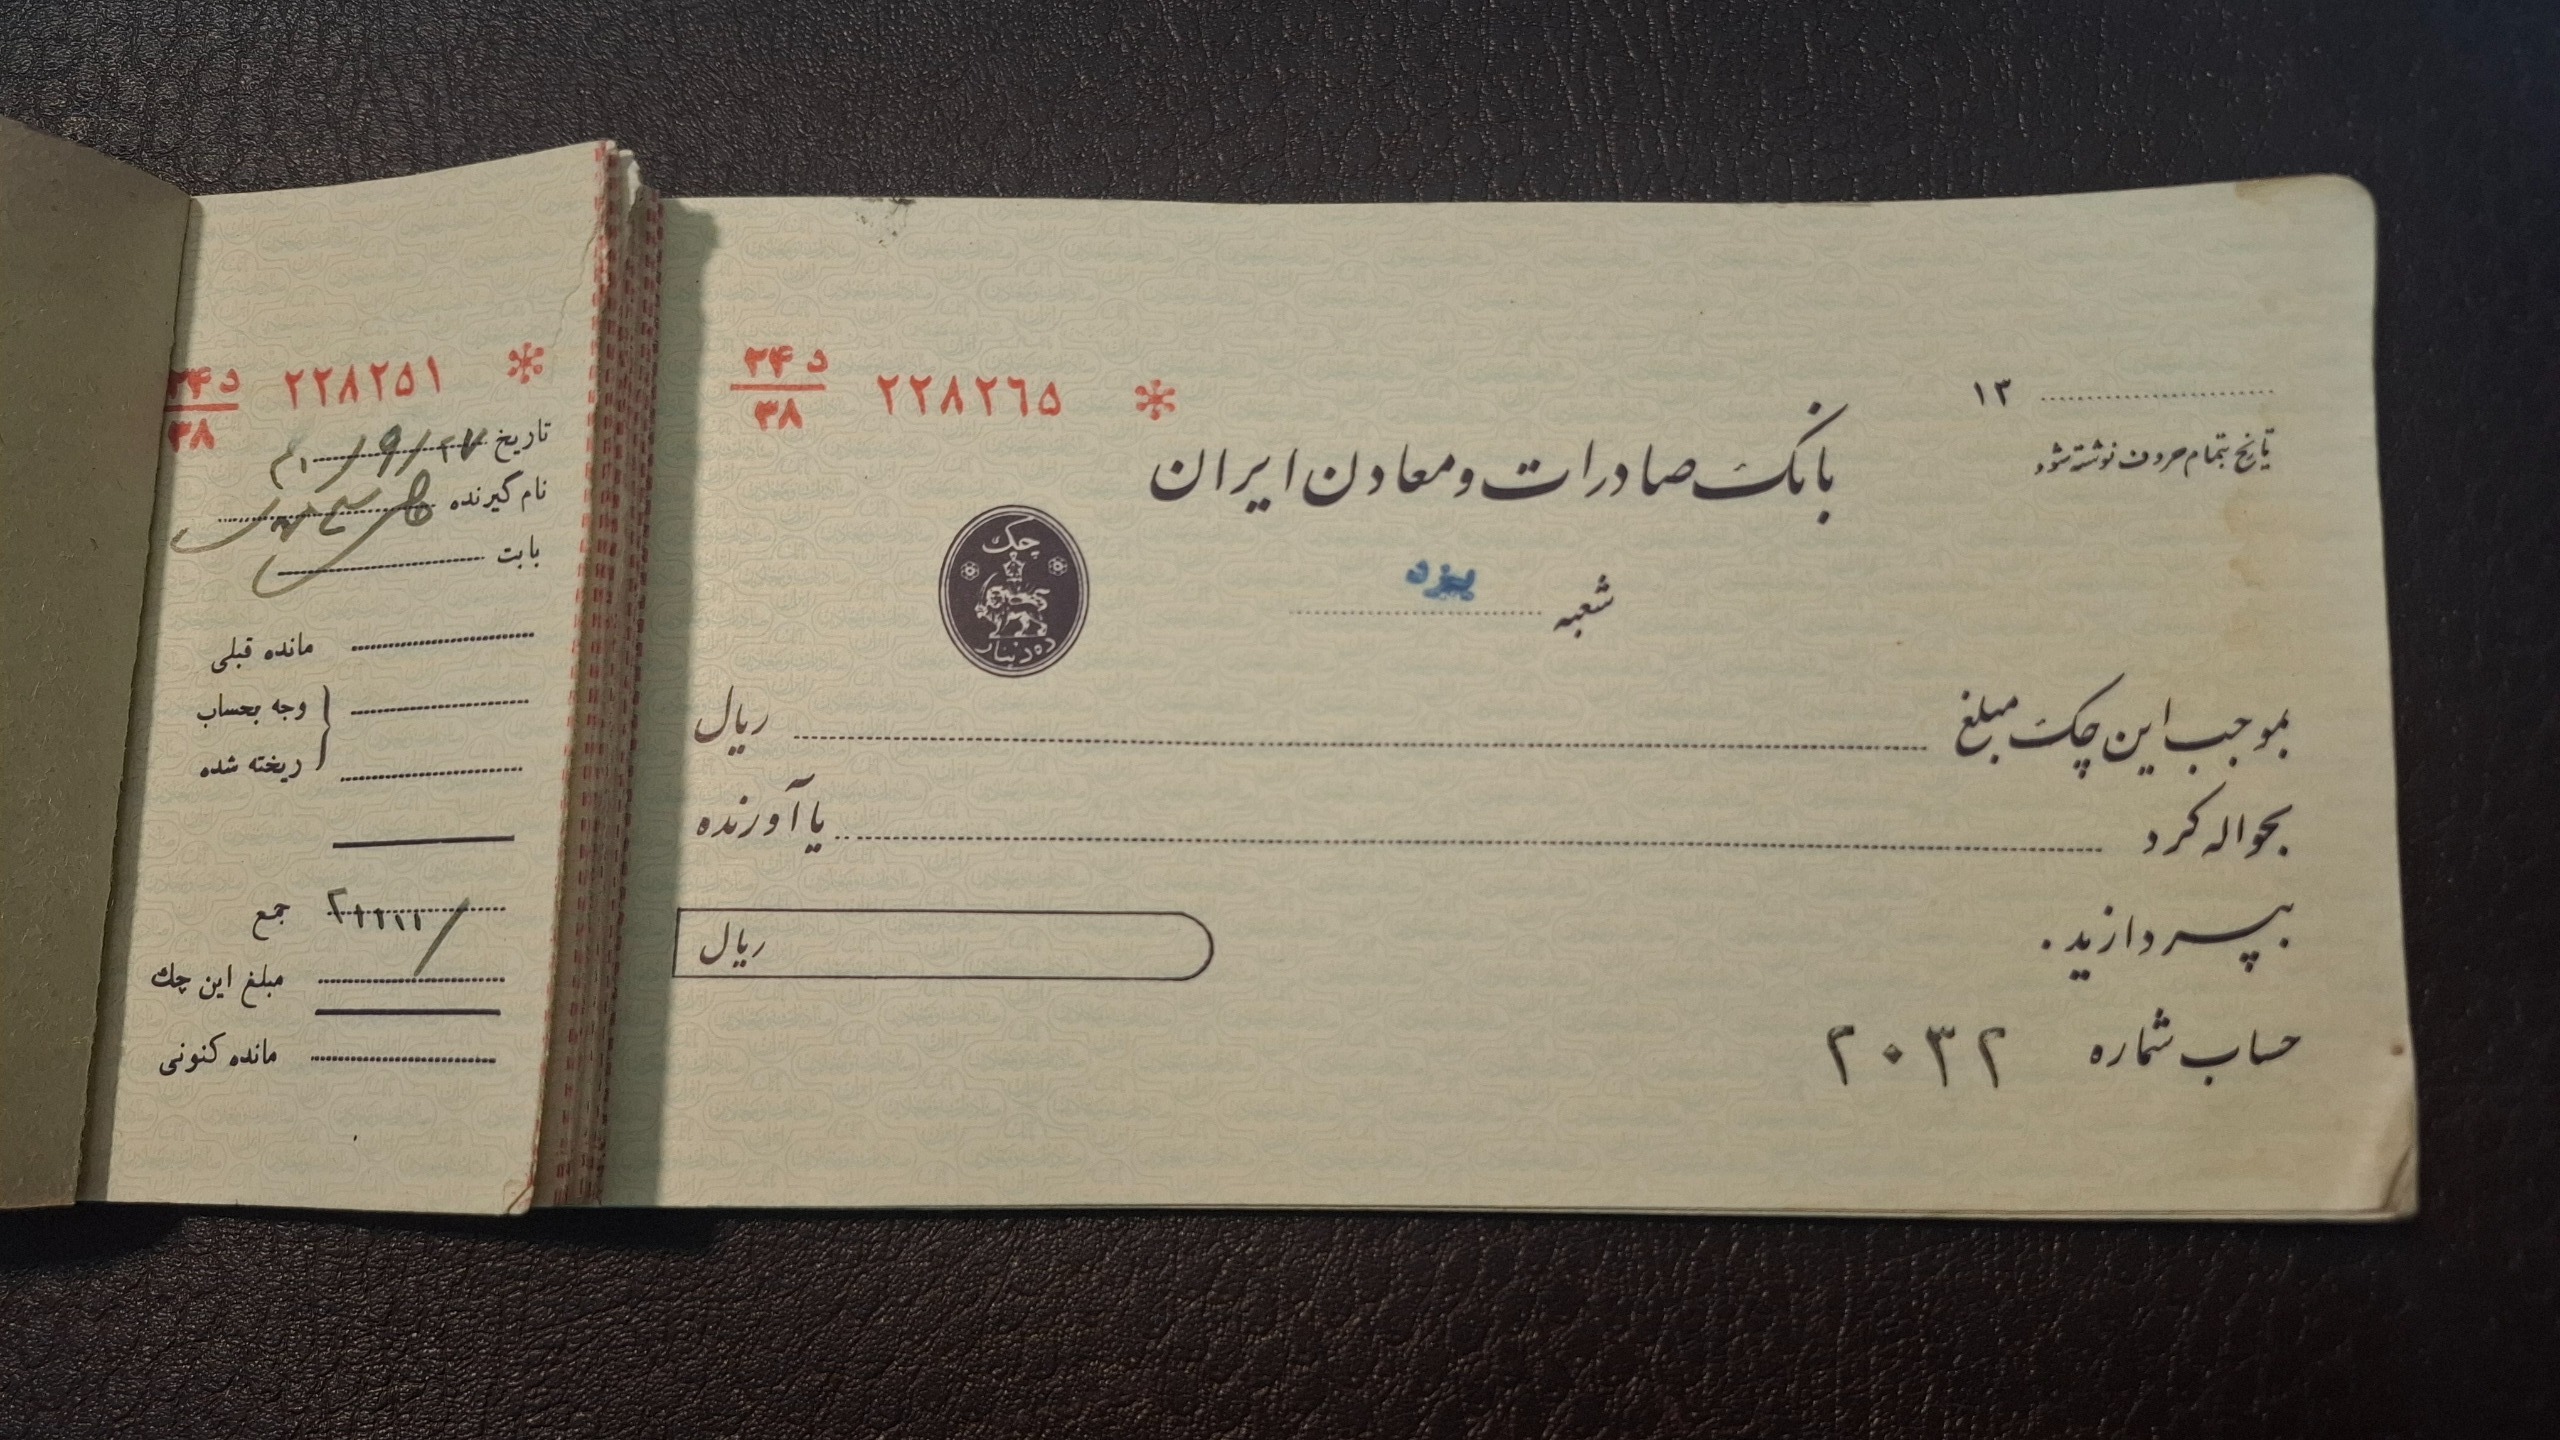 د ۲۴ ۲۲۸۲۵۱ *
۳۸
تاریخ ۲۷/۹/
نام گیرنده
بابت
مانده قبلی
وجه بحساب
ریخته شده
جمع
مبلغ این چك
مانده کنونی
د ۲۴ ۲۲۸۲٦۵ *
۳۸
۱۳
تاریخ بتمام حروف نوشته شود
بانک صادرات و معادن ایران
چک
ده دینار
شعبه یزد
بموجب این چک مبلغ ریال
بحواله کرد یا آورنده
بپردازید.
ریال
حساب شماره ۲۰۳۲